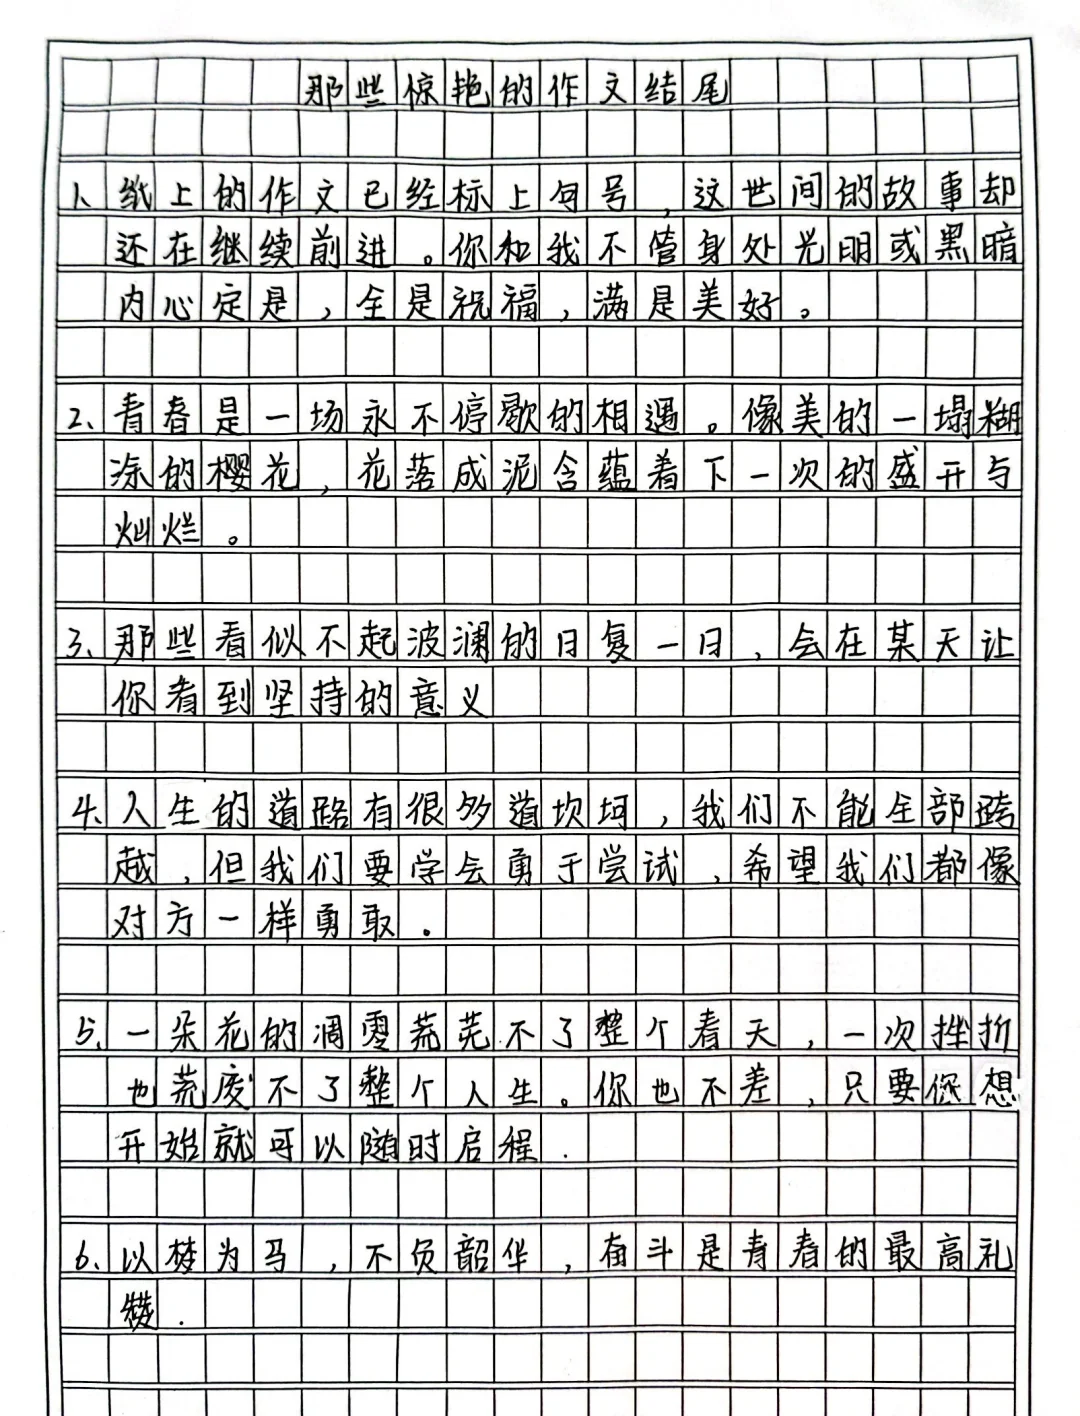 那些惊艳的作文结尾
1、纸上的作文已经标上句号,这世间的故事却
还在继续前进。你和我不管身处光明或黑暗
内心定是,全是祝福,满是美好。
2、青春是一场永不停歇的相遇。像美的一塌糊
涂的樱花,花落成泥含蕴着下一次的盛开与
灿烂。
3、那些看似不起波澜的日复一日,会在某天让
你看到坚持的意义
4、人生的道路有很多道坎坷,我们不能全部跨
越,但我们要学会勇于尝试,希望我们都像
对方一样勇敢.
5、一朵花的凋零荒芜不了整个春天,一次挫折
也荒废不了整个人生。你也不差,只要您想
开始就可以随时启程.
6、以梦为马,不负韶华,奋斗是青春的最高礼
赞.